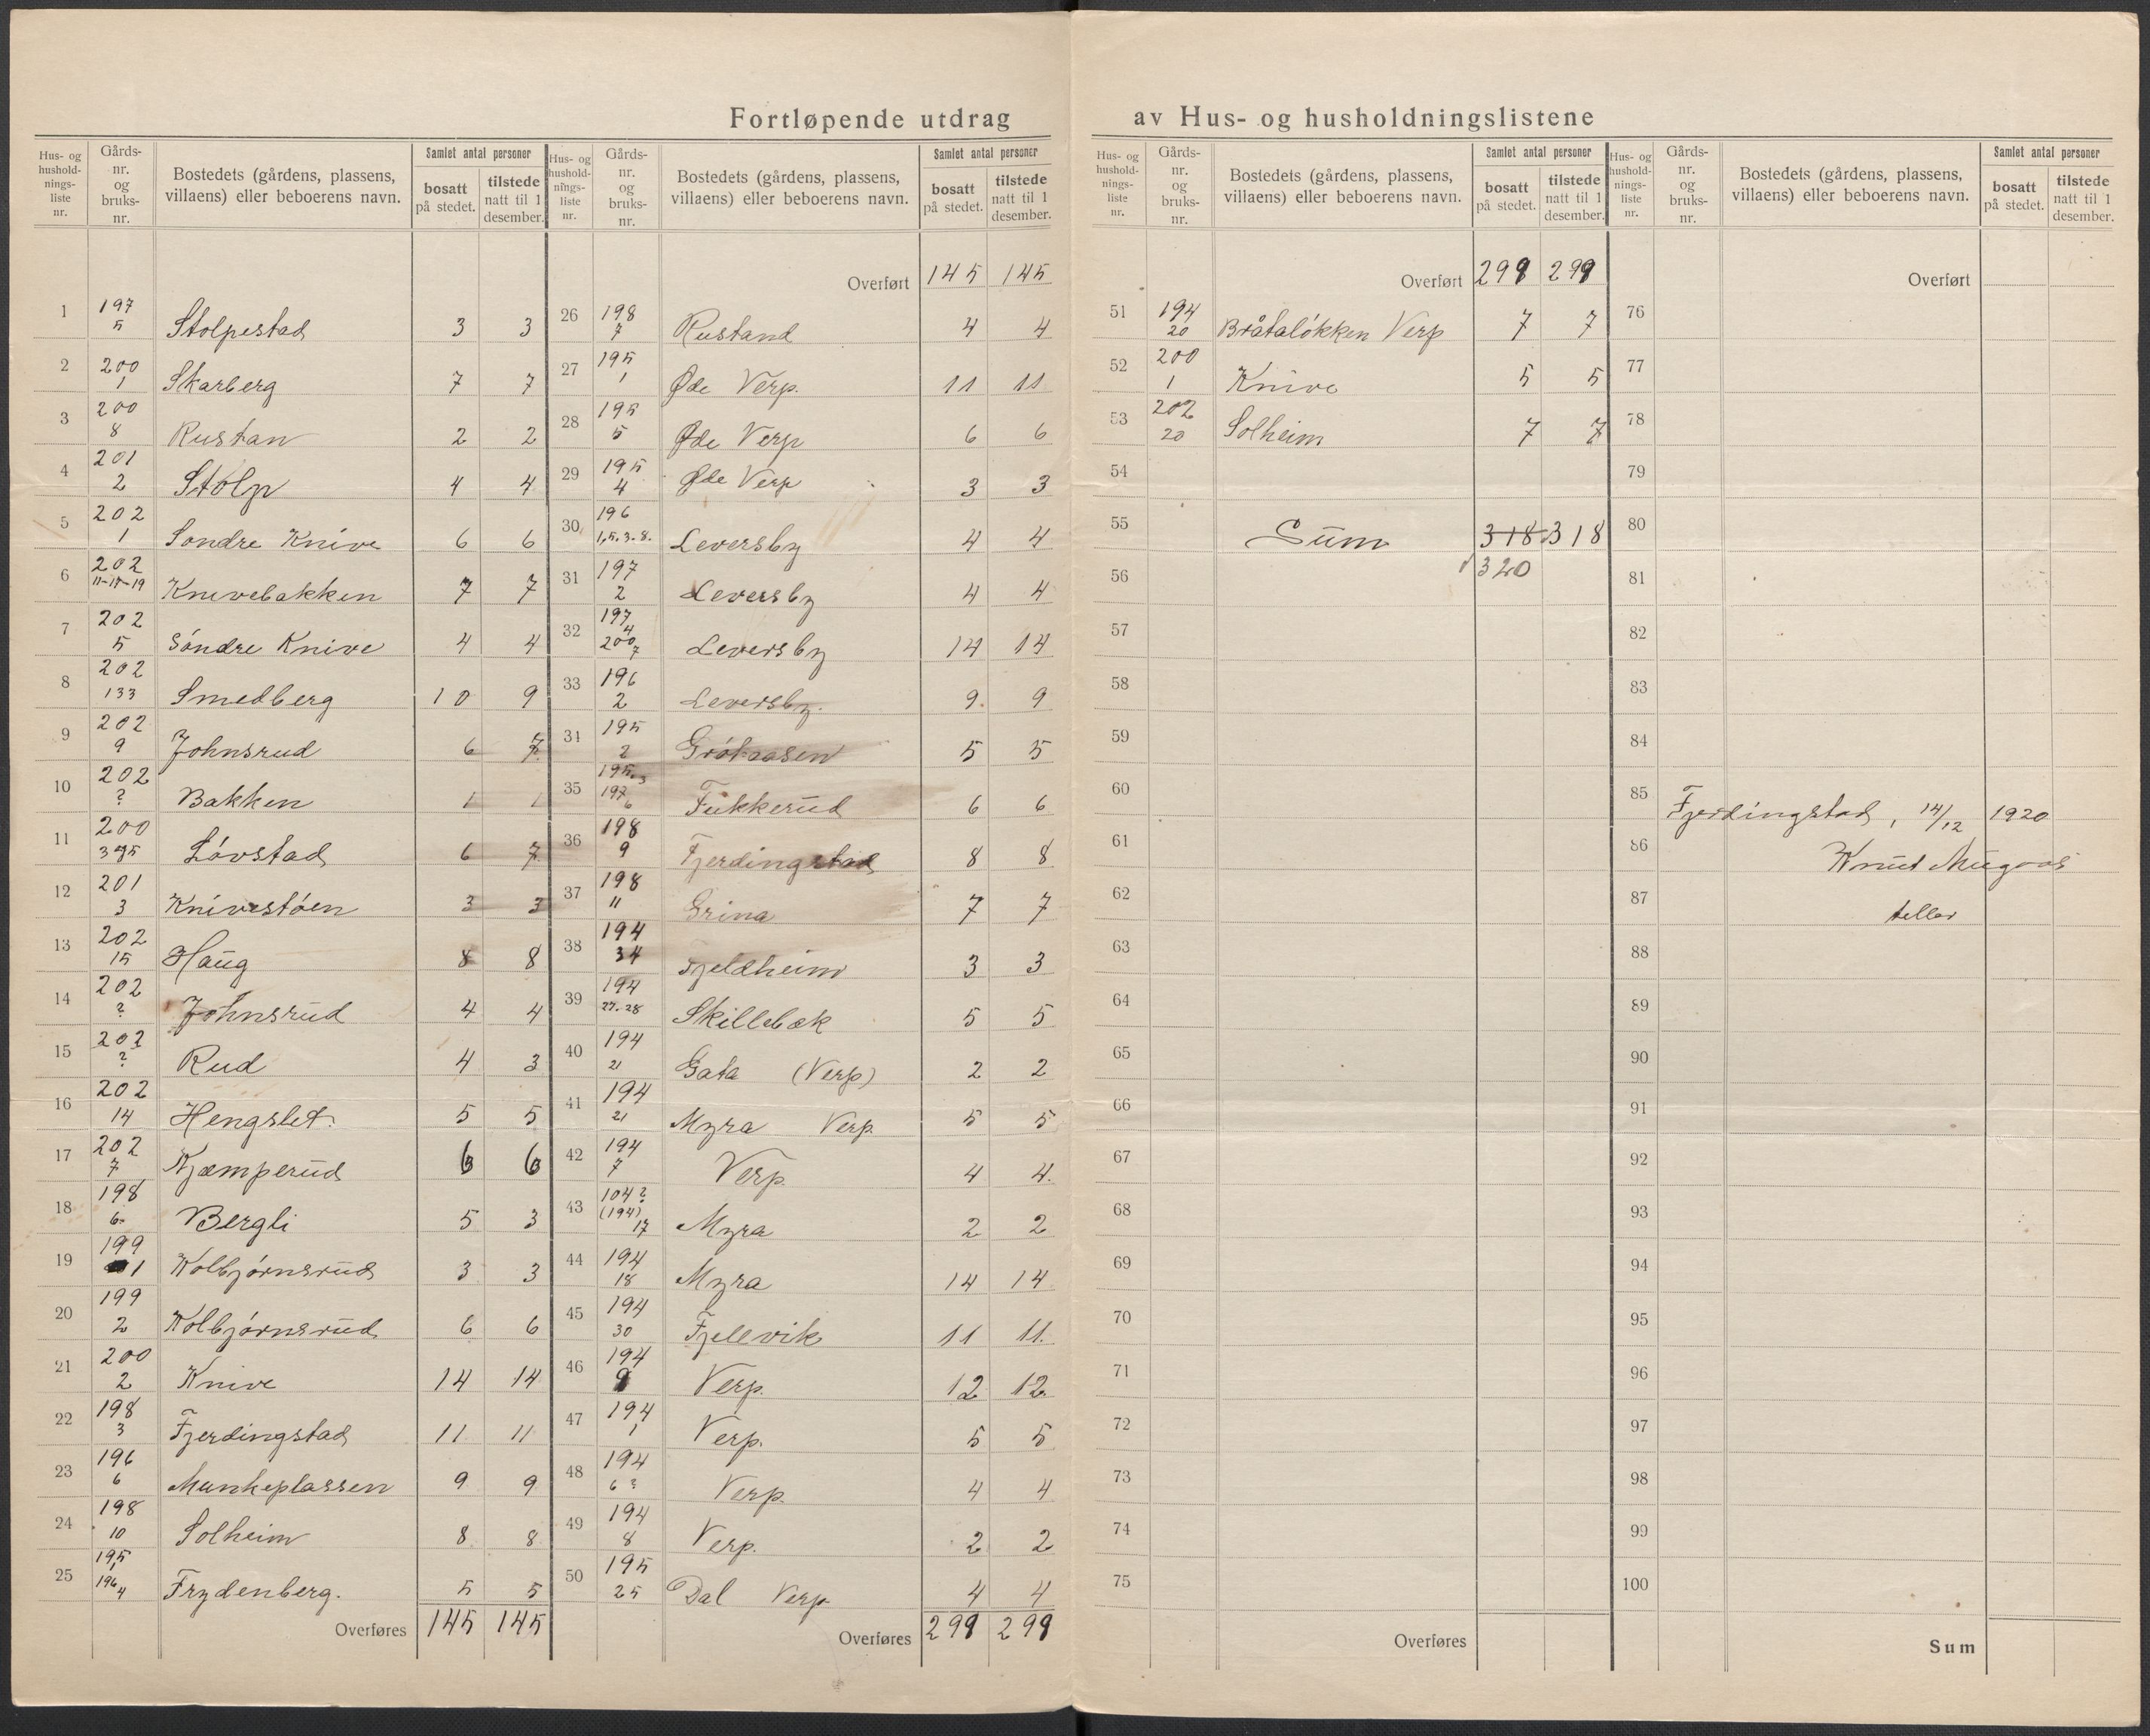 Fortløpende utdrag av Hus- og husholdningslistene
Hus- og hushold-nings-liste nr. | Gårds-nr. og bruks-nr. | Bostedets (gårdens, plassens, villaens) eller beboerens navn. | Samlet antal personer | bosatt på stedet. | tilstede natt til 1 desember.
1 | 197 5 | Stolpestad | 3 | 3
2 | 200 1 | Skarberg | 7 | 7
3 | 200 8 | Rustan | 2 | 2
4 | 201 2 | Stolp | 4 | 4
5 | 202 1 | Søndre Knive | 6 | 6
6 | 202 11-17-19 | Knivebakken | 7 | 7
7 | 202 5 | Søndre Knive | 4 | 4
8 | 202 133 | Smedberg | 10 | 9
9 | 202 9 | Johnsrud | 6 | 7
10 | 202 ? | Bakken | 1 | 1
11 | 200 | Løvstad | 6 | 7
12 | 201 3 | Knivestøen | 3 | 3
13 | 202 15 | Haug | 8 | 8
14 | 202 ? | Johnsrud | 4 | 4
15 | 202 ? | Rud | 4 | 3
16 | 202 14 | Hengslet. | 5 | 5
17 | 202 7 | Kjæmperud | 6 | 6
18 | 198 6 | Bergli | 5 | 3
19 | 199 1 | Kolbjørnsrud | 3 | 3
20 | 199 2 | Kolbjørnsrud | 6 | 6
21 | 200 2 | Knive | 14 | 14
22 | 198 3 | Fjerdingstad | 11 | 11
23 | 196 6 | Munkeplassen | 9 | 9
24 | 198 10 | Solheim | 8 | 8
25 | 195 1 196 4 | Frydenberg. | 5 | 5
Overføres | 145 | 145
Hus- og hushold-nings-liste nr. | Gårds-nr. og bruks-nr. | Bostedets (gårdens, plassens, villaens) eller beboerens navn. | Samlet antal personer | bosatt på stedet. | tilstede natt til 1 desember.
Overført | 145 | 145
26 | 198 7 | Rustand | 4 | 4
27 | 195 1 | Øde Verp. | 11 | 11
28 | 195 5 | Øde Verp | 6 | 6
29 | 195 4 | Øde Verp | 3 | 3
30 | 196 1,5.3-8. | Leversby | 4 | 4
31 | 197 2 | Leversby | 4 | 4
32 | 197 4 200 7 | Leversby | 14 | 14
33 | 196 2 | Leversby. | 9. | 9
34 | 195 2 | Grøtaasen | 5 | 5
35 | 195.3 197 6 | Fukkerud | 6 | 6
36 | 198 9 | Fjerdingstad | 8 | 8
37 | 198 11 | Grina | 7 | 7
38 | 194 34 | Fjeldheim | 3 | 3
39 | 194 27-28 | Skillebæk | 5 | 5
40 | 194 21 | Gata (Verp) | 2 | 2
41 | 194 21 | Myra Verp. | 5 | 5
42 | 194 7 | Verp. | 4 | 4.
43 | 104? (194) 17 | Myra | 2 | 2
44 | 194 18 | Myra | 14 | 14
45 | 194 30 | Fjellvik | 11 | 11.
46 | 194 9 | Verp. | 12 | 12.
47 | 194 1 | Verp. | 5 | 5
48 | 194 6 ? | Verp. | 4 | 4
49 | 194 8 | Verp. | 2 | 2
50 | 195 25 | Dal Verp | 4 | 4
Overføres | 299 | 299
Hus- og hushold-nings-liste nr. | Gårds-nr. og bruks-nr. | Bostedets (gårdens, plassens, villaens) eller beboerens navn. | Samlet antal personer | bosatt på stedet. | tilstede natt til 1 desember.
Overført | 299 | 299
51 | 194 20 | Bråtaløkken Verp | 7 | 7
52 | 200 1 | Knive | 5 | 5
53 | 202 20 | Solheim | 7 | 7
54
55 | Sum | 318 | 318
56 | 320
57
58
59
60
61
62
63
64
65
66
67
68
69
70
71
72
73
74
75
Overføres
Hus- og hushold-nings-liste nr. | Gårds-nr. og bruks-nr. | Bostedets (gårdens, plassens, villaens) eller beboerens navn. | Samlet antal personer | bosatt på stedet. | tilstede natt til 1 desember.
Overført
76
77
78
79
80
81
82
83
84
85 | Fjerdingstad, 14/12 1920
86 | Knut
87 | teller
88
89
90
91
92
93
94
95
96
97
98
99
100
Sum